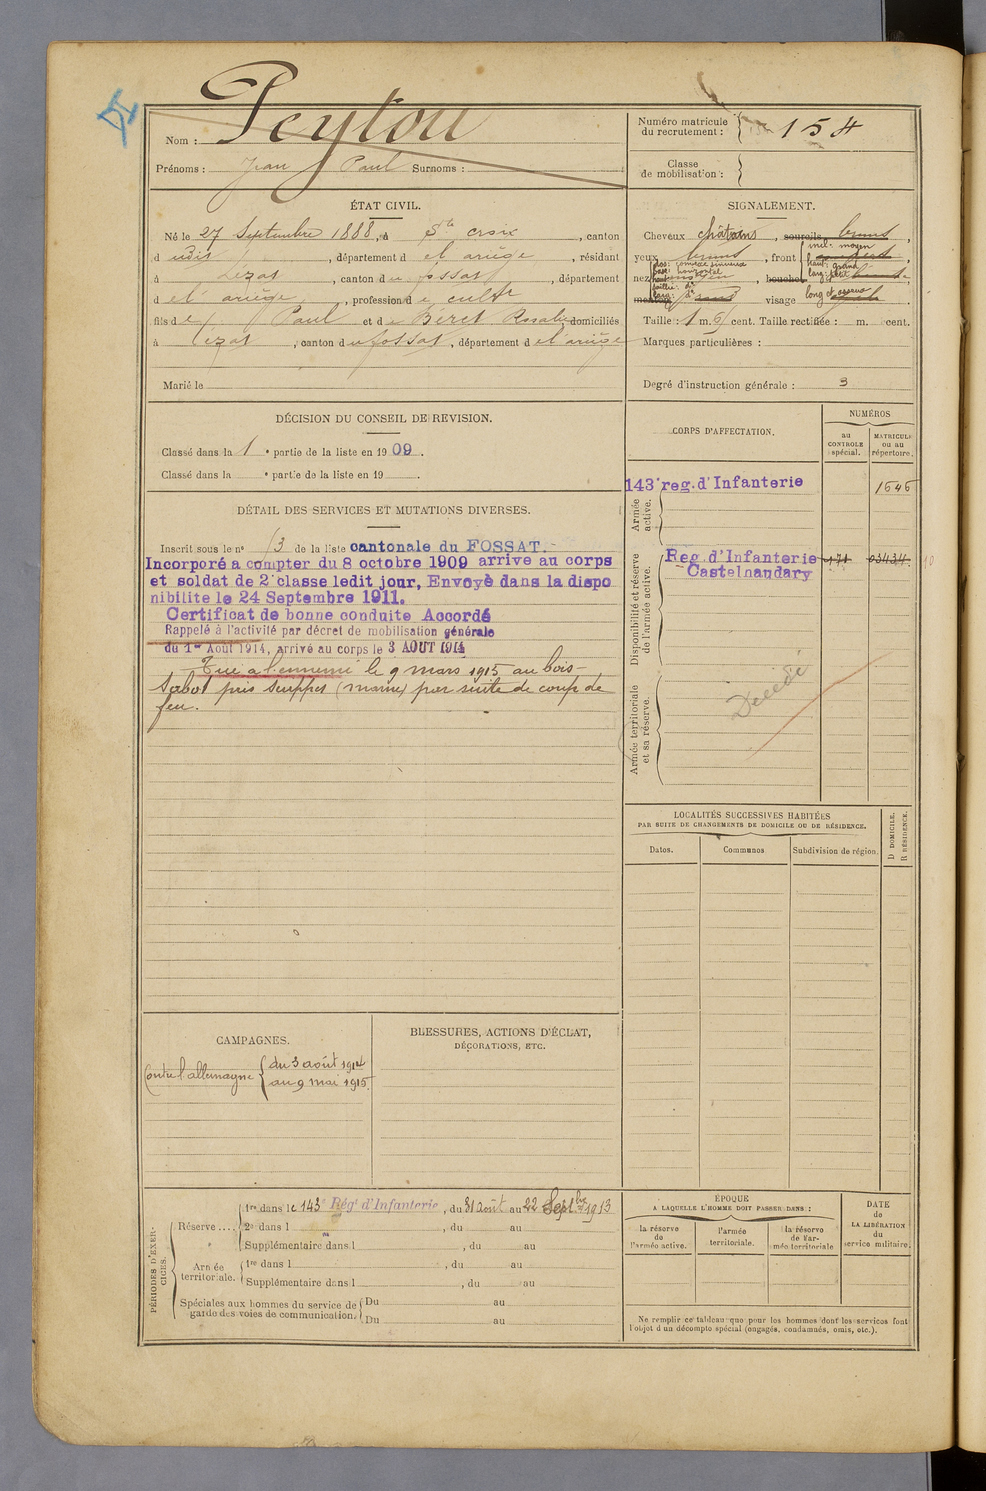 Nom : Peytou
Prénoms : Jean Paul Surnoms :
Numéro matricule
du recrutement : 154
Classe
de mobilisation :
ÉTAT CIVIL.
Né le 27 Septembre 1888, à Ste croix, canton
dudit, département de l'ariège, résidant
à Lézat, canton du fossat, département
de l'ariège, profession de cultr
fils de Paul et de Béret Rosalie domiciliés
à Lézat, canton du fossat, département de l'ariège
Marié le
SIGNALEMENT.
Cheveux châtains, sourcils bruns,
yeux bruns, front incl: moyen
haut: grand
larg: petit
nez dos: convexe sinueux
base: horizontal
visage long et osseux
Taille : 1 m. 61 cent. Taille rectifiée : m. cent.
Marques particulières :
Degré d'instruction générale : 3
DÉCISION DU CONSEIL DE REVISION.
Classé dans la 1e partie de la liste en 1909.
Classé dans la e partie de la liste en 19 .
DÉTAIL DES SERVICES ET MUTATIONS DIVERSES.
Inscrit sous le no 13 de la liste cantonale du FOSSAT.
Incorporé a compter du 8 octobre 1909 arrive au corps
et soldat de 2e classe ledit jour, Envoyé dans la dispo
nibilite le 24 Septembre 1911.
Certificat de bonne conduite Accordé
Rappelé à l'activité par décret de mobilisation générale
du 1er Août 1914, arrivé au corps le 3 AOUT 1914
Tué a l'ennemi le 9 mars 1915 au bois-
Sabot près Suippes (marne) par suite de coup de
feu.
CORPS D'AFFECTATION.
NUMÉROS
au
CONTROLE
spécial.
MATRICULE
ou au
répertoire.
Armée
active.
143e reg. d'Infanterie 1545
Disponibilité et réserve
de l'armée active.
Reg. d'Infanterie 171 03434
Castelnaudary
Armée territoriale
et sa réserve.
Décédé
LOCALITÉS SUCCESSIVES HABITÉES
PAR SUITE DE CHANGEMENTS DE DOMICILE OU DE RÉSIDENCE.
Dates.
Communes
Subdivision de région.
D DOMICILE.
R RÉSIDENCE.
CAMPAGNES.
Contre l'allemagne du 3 août 1914
au 9 mai 1915
BLESSURES, ACTIONS D'ÉCLAT,
DÉCORATIONS, ETC.
PÉRIODES D'EXER-
CICES.
Réserve ....
1re dans le 143e Régt d'Infanterie, du 31 août au 22 Septbre 1913
2e dans l , du au
Supplémentaire dans l , du au
Armée
territoriale.
1re dans l , du au
Supplémentaire dans l , du au
Spéciales aux hommes du service de
garde des voies de communication.
Du au
Du au
ÉPOQUE
A LAQUELLE L'HOMME DOIT PASSER DANS :
la réserve
de
l'armée active.
l'armée
territoriale.
la réserve
de l'ar-
mée territoriale
DATE
de
LA LIBÉRATION
du
service militaire.
Ne remplir ce tableau que pour les hommes dont les services font
l'objet d'un décompte spécial (engagés, condamnés, omis, etc.).